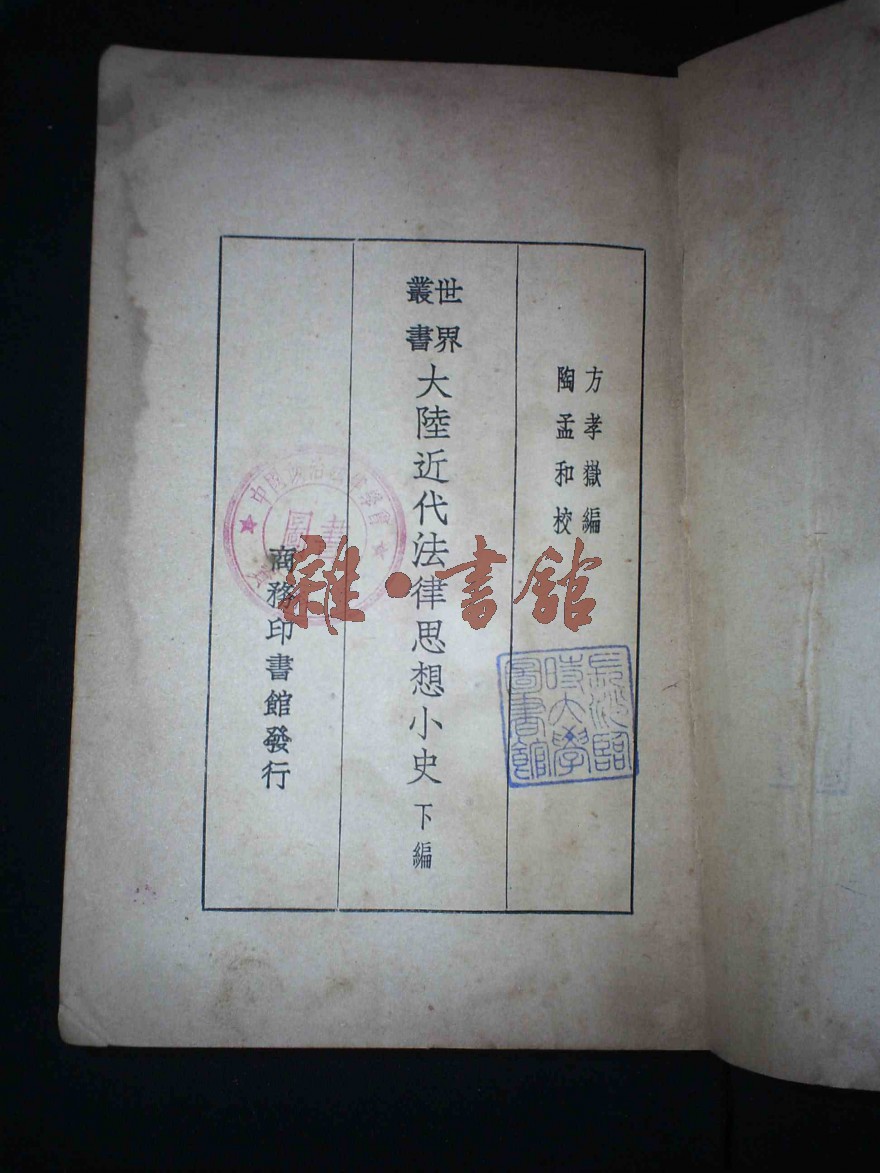 方孝嶽編
陶孟和校
世界
叢書
大陸近代法律思想小史 下編
商務印書館發行
中國政治法律學會
圖書
長沙臨
時大學
圖書館
雜·書館